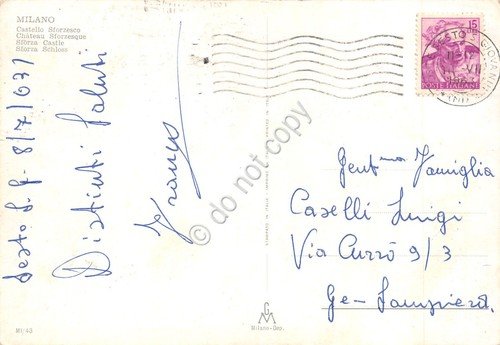 MILANO
Castello Sforzesco
Château Sforzesque
Sforza Castle
Sforza Schloss
15
POSTE ITALIANE
Sesto S. G. 8/7/1963
Distinti Saluti
Franco
do not copy
Gent.ma Famiglia
Caselli Luigi
Via Currò 9/3
Ge-Sampierd.
Milano-Gep.
MI/43